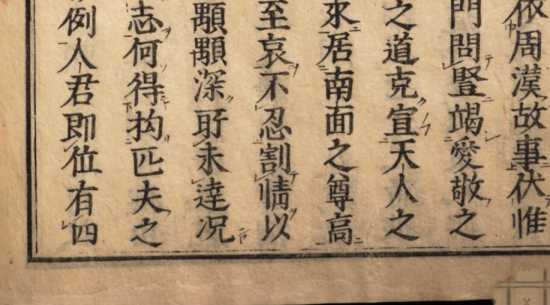 依周漢故事伏惟
門問豎竭愛敬之
之道克宣天人之
來居南面之尊高
至哀不忍割情以
顒顒深所未達况
志何得拘匹夫之
例人君即位有四